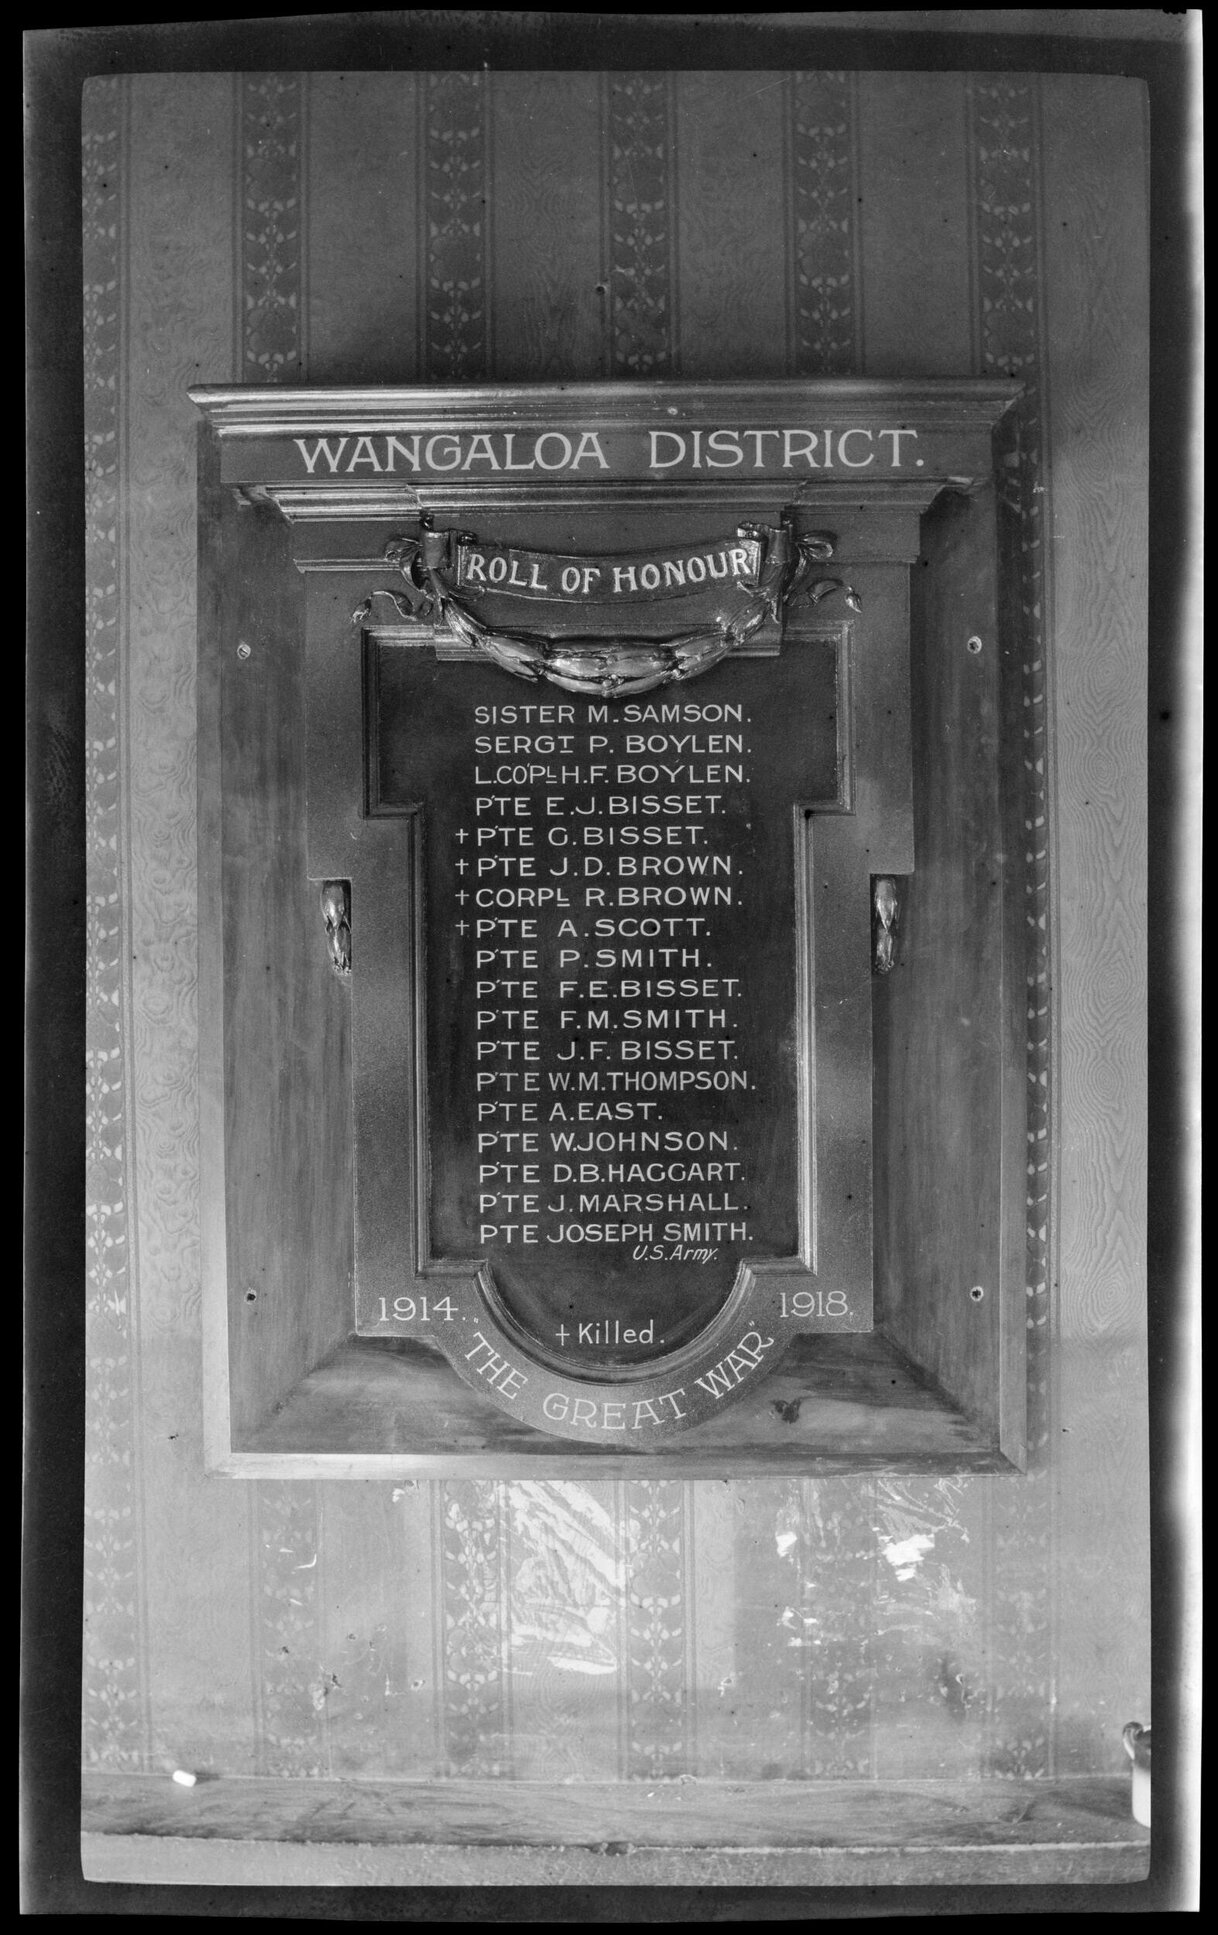 WANGALOA DISTRICT.
ROLL OF HONOUR
SISTER M. SAMSON.
SERGT P. BOYLEN.
L.CO'PL H.F. BOYLEN.
P'TE E.J. BISSET.
+ P'TE G. BISSET.
+ P'TE J.D. BROWN.
+ CORPL R. BROWN.
+ P'TE A. SCOTT.
P'TE P. SMITH.
P'TE F.E. BISSET.
P'TE F.M. SMITH.
P'TE J.F. BISSET.
P'TE W.M. THOMPSON.
P'TE A. EAST.
P'TE W. JOHNSON.
P'TE D.B. HAGGART.
P'TE J. MARSHALL.
P'TE JOSEPH SMITH.
U.S. Army.
+ Killed.
1914. 1918.
"THE GREAT WAR"